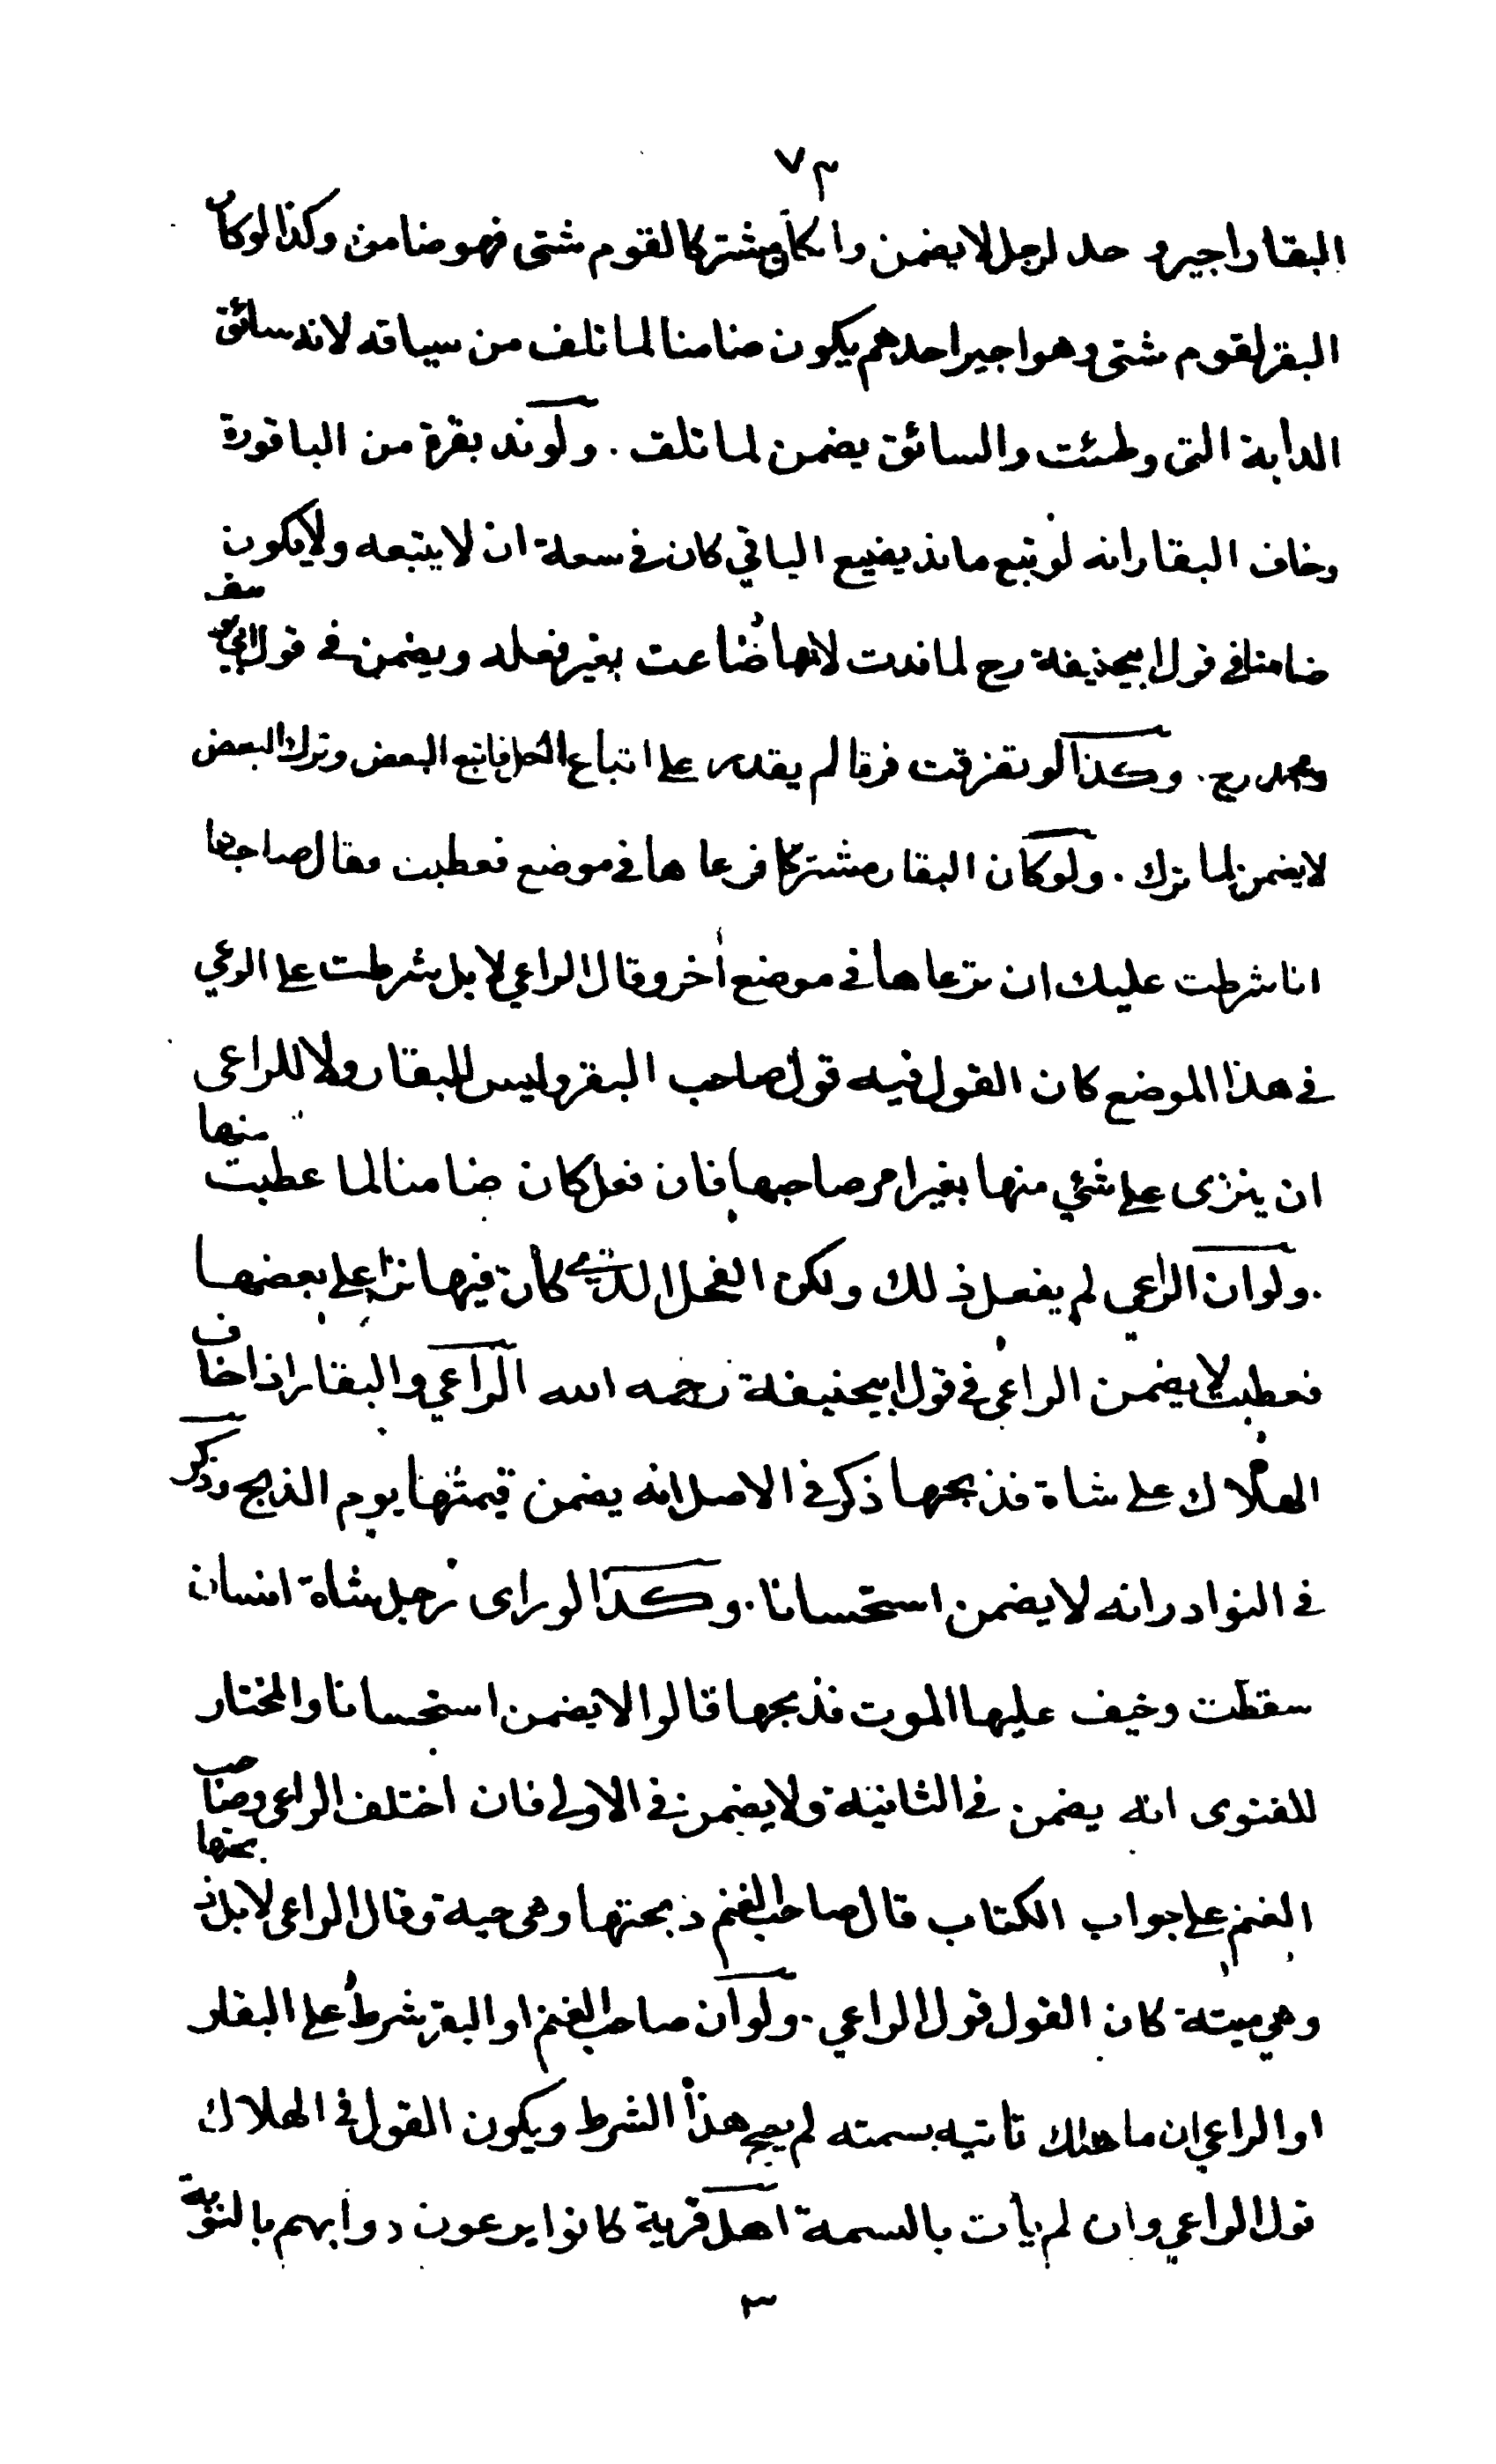 ٧٣
البقار اجير وحد لرجل لا يضمن وان كان مشتركا لقوم شتى فهو ضامن وكذا لو كان
البقر لقوم شتى وهو اجير احدهم يكون ضامنا لما تلف من سياقه لانه سائق
الدابة التى وطئت والسائق يضمن لما تلف . ولو ند بقرة من الباقورة
وخاف البقار انه لو تبع ما ند يضيع الباقي كان في سعة ان لا يتبعه ولا يكون
ضامنا في قول ابيحنيفة رح لما ندت لانها ضاعت بغير فعله ويضمن في قول ابي يوسف
ومحمد رح . وكذا لو تفرقت فرقا لم يقدر على اتباع الكل فاتبع البعض وترك البعض
لا يضمن لما ترك . ولو كان البقار مشتركا فرعاها في موضع فعطبت فقال صاحبها
انا شرطت عليك ان ترعاها في موضع أخر وقال الراعي لا بل شرطت على الرعي
في هذا الموضع كان القول فيه قول صاحب البقر وليس للبقار ولا للراعى
ان ينزى على شئي منها بغير امر صاحبها فان فعل كان ضامنا لما عطبت منها
. ولو ان الراعي لم يفعل ذلك ولكن الفحل الذي كان فيها نزا على بعضها
فعطبت لا يضمن الراعى في قول ابيحنيفة رحمه الله الراعي والبقار اذا خاف
الهلاك على شاة فذبحها ذكر في الاصل انه يضمن قيمتها يوم الذبح وذكر
في النوادر انه لا يضمن استحسانا . وكذا لو راى رجل شاة انسان
سقطت وخيف عليها الموت فذبحها قالوا لا يضمن استحسانا والمختار
للفتوى انه يضمن في الثانية ولا يضمن في الاولى فان اختلف الراعى وصاحب
الغنم على جواب الكتاب قال صاحب الغنم ذبحتها وهى حية وقال الراعى لا بل ذبحتها
وهي ميتة كان القول قول الراعي . ولو ان صاحب الغنم او البقر شرط على البقار
او الراعي ان ما هلك تاتيه بسمته لم يصح هذا الشرط ويكون القول في الهلاك
قول الراعي وان لم يأت بالسمة اهل قرية كانوا يرعون دوابهم بالنوبة
٣